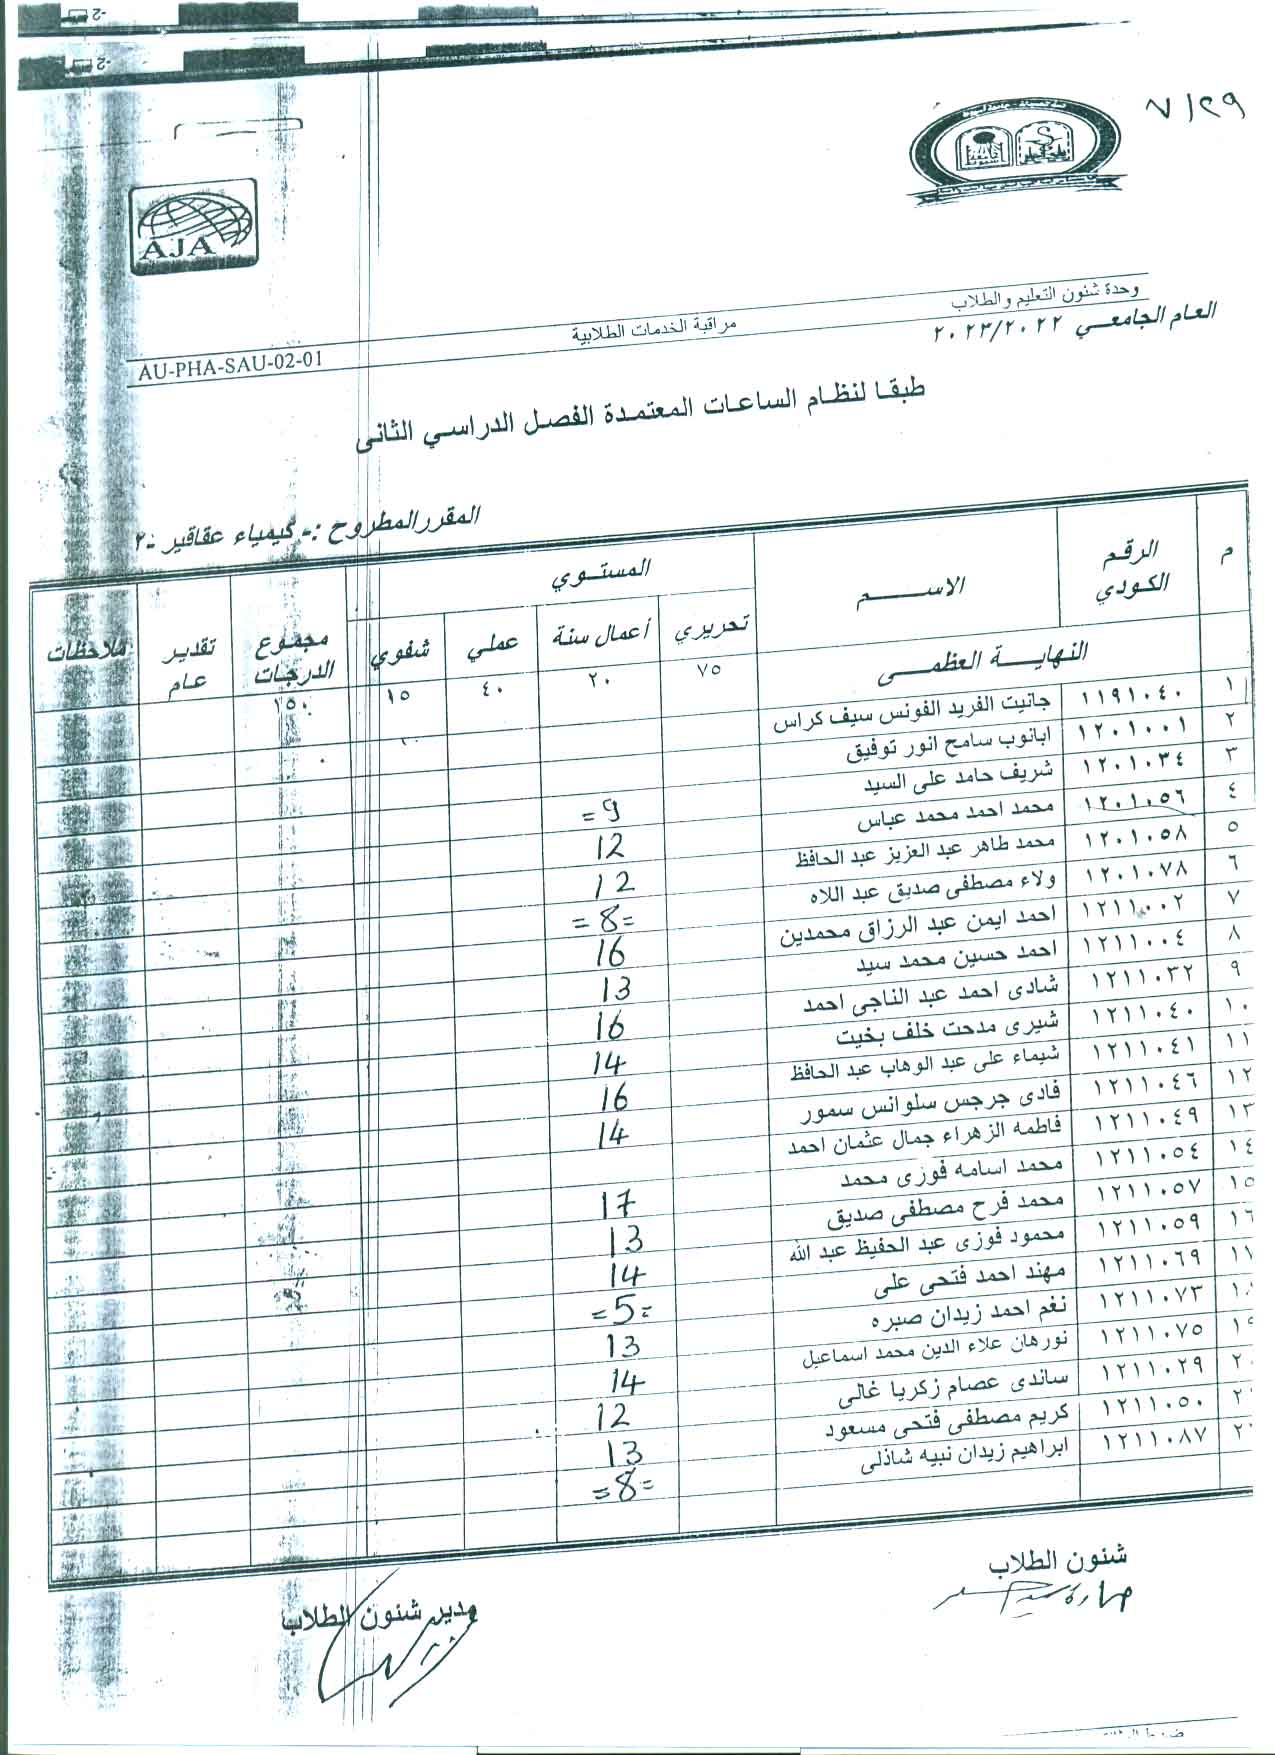 ٧/٢٩
AJA
وحدة شئون التعليم والطلاب
مراقبة الخدمات الطلابية
AU-PHA-SAU-02-01
العام الجامعي ٢٠٢٣/٢٠٢٢
طبقا لنظام الساعات المعتمدة الفصل الدراسي الثانى
المقرر المطروح :- كيمياء عقاقير -٢
م الرقم الكودي الاســـــم المستوي مجموع الدرجات تقدير عام ملاحظات
تحريري أعمال سنة عملي شفوي
النهايـــة العظمـــى ٧٥ ٢٠ ٤٠ ١٥ ١٥٠
١ ١١٩١٠٤٠ جانيت الفريد الفونس سيف كراس
٢ ١٢٠١٠٠١ ابانوب سامح انور توفيق
٣ ١٢٠١٠٣٤ شريف حامد على السيد = 9
٤ ١٢٠١٠٥٦ محمد احمد محمد عباس 12
٥ ١٢٠١٠٥٨ محمد طاهر عبد العزيز عبد الحافظ 12
٦ ١٢٠١٠٧٨ ولاء مصطفى صديق عبد اللاه = 8 =
٧ ١٢١١٠٠٢ احمد ايمن عبد الرزاق محمدين 16
٨ ١٢١١٠٠٤ احمد حسين محمد سيد 13
٩ ١٢١١٠٣٢ شادى احمد عبد الناجى احمد 16
١٠ ١٢١١٠٤٠ شيرى مدحت خلف بخيت 14
١١ ١٢١١٠٤١ شيماء على عبد الوهاب عبد الحافظ 16
١٢ ١٢١١٠٤٦ فادى جرجس سلوانس سمور 14
١٣ ١٢١١٠٤٩ فاطمه الزهراء جمال عثمان احمد
١٤ ١٢١١٠٥٤ محمد اسامه فوزى محمد 17
١٥ ١٢١١٠٥٧ محمد فرح مصطفى صديق 13
١٦ ١٢١١٠٥٩ محمود فوزى عبد الحفيظ عبد الله 14
١٧ ١٢١١٠٦٩ مهند احمد فتحى على = 5 =
١٨ ١٢١١٠٧٣ نغم احمد زيدان صبره 13
١٩ ١٢١١٠٧٥ نورهان علاء الدين محمد اسماعيل 14
٢٠ ١٢١١٠٢٩ ساندى عصام زكريا غالى 12
٢ ١٢١١٠٥٠ كريم مصطفى فتحى مسعود 13
٢ ١٢١١٠٨٧ ابراهيم زيدان نبيه شاذلى = 8 =
شئون الطلاب
مدير شئون الطلاب